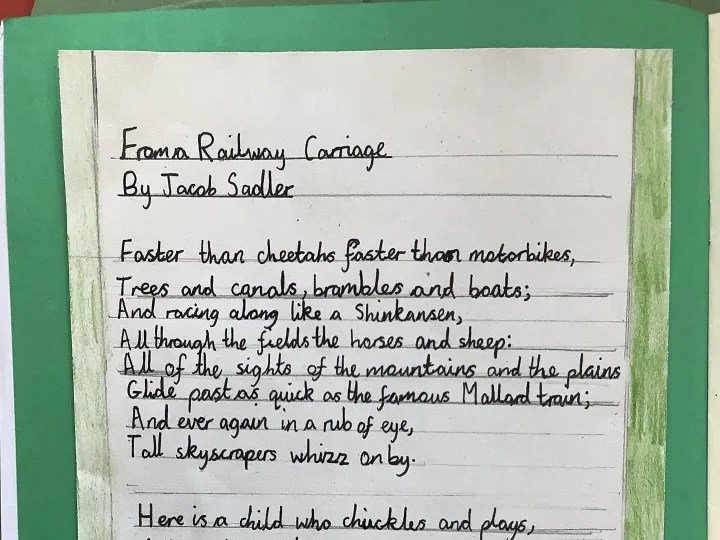 From a Railway Carriage
By Jacob Sadler
Faster than cheetahs faster than motorbikes,
Trees and canals, brambles and boats;
And racing along like a Shinkansen,
All through the fields the horses and sheep:
All of the sights of the mountains and the plains
Glide past as quick as the famous Mallard train;
And ever again in a rub of eye,
Tall skyscrapers whizz on by.
Here is a child who chuckles and plays,